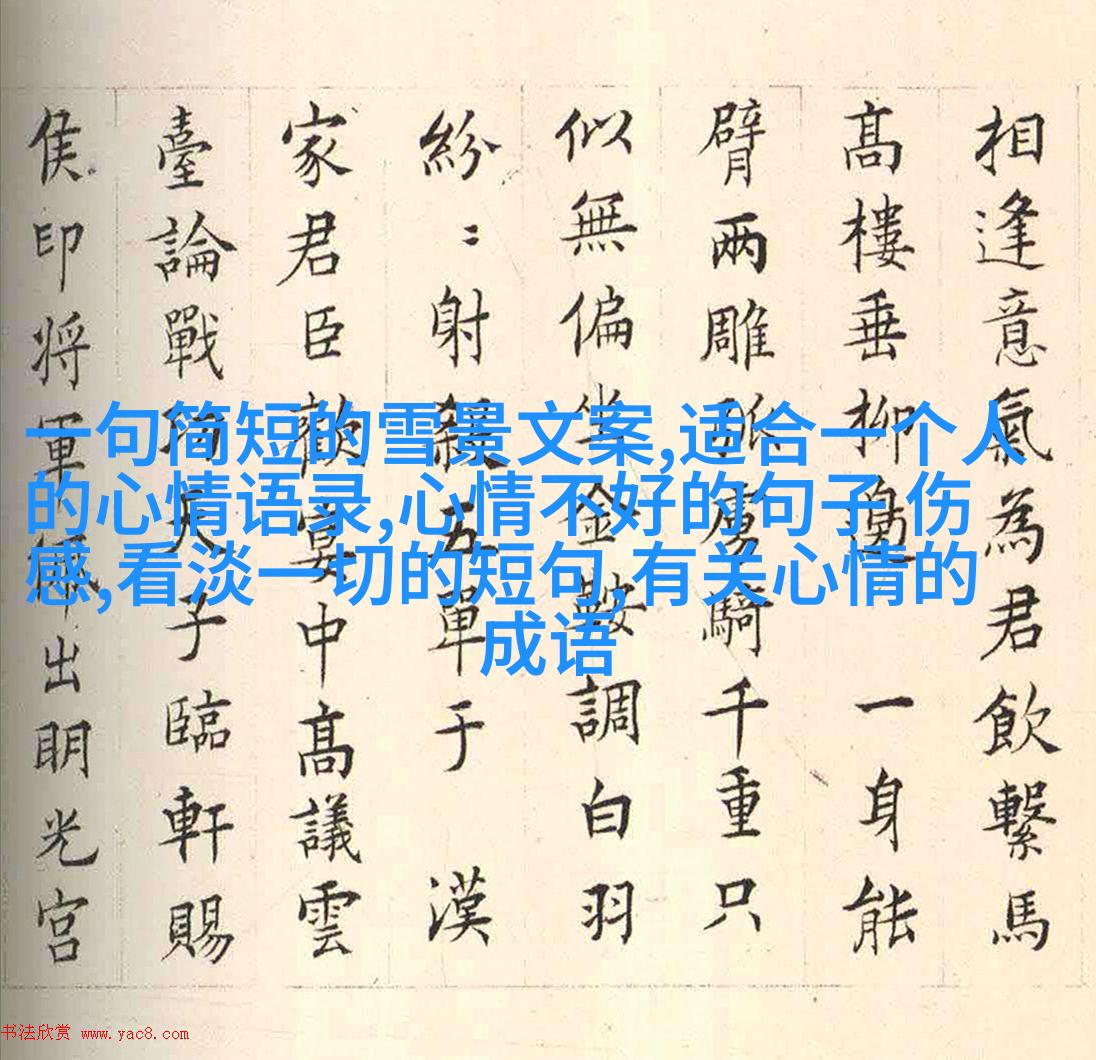 相逢意氣為君飲繫馬
髙樓垂柳邊 一身能
臂兩雕弧虜騎千重只
似無偏坐金鞍調白羽
紛〻射殺五單于 漢
家君臣歡宴中髙議雲
臺論戰功天子臨軒賜
侯印将軍佩出明光宮
一句简短的雪景文案,适合一个人
的心情语录,心情不好的句子 伤
感,看淡一切的短句,有关心情的
成语
书法欣赏 www.yac8.com